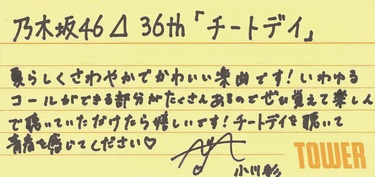 乃木坂46⊿ 36th「チートデイ」
夏らしくさわやかでかわいい楽曲です!いわゆる
コールができる部分がたくさんあるのでぜひ覚えて楽しん
で聴いていただけたら嬉しいです!チートデイを聴いて
青春を感じてください♡
小川彩
TOWER